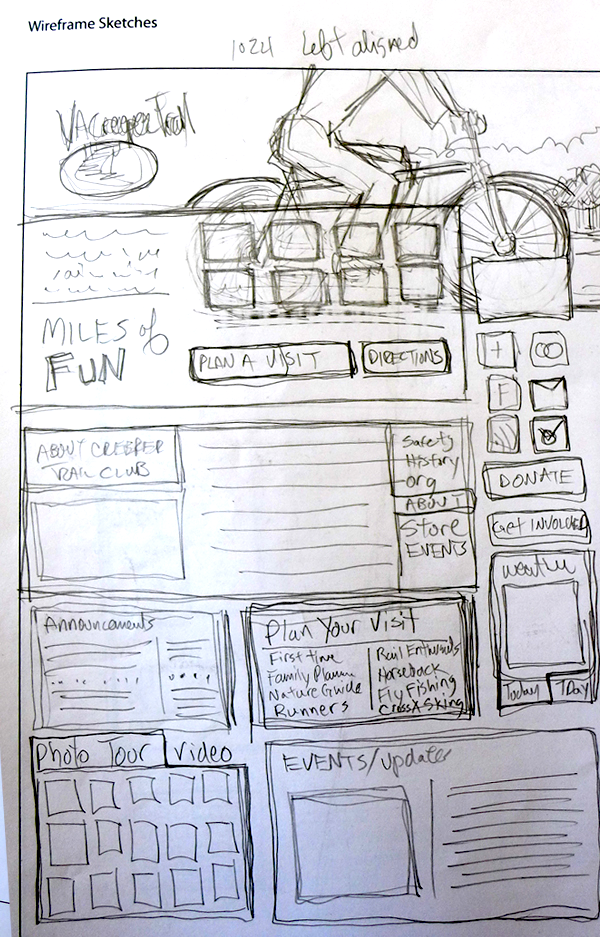 Wireframe Sketches
1024 Left aligned
VA Creeper Trail
MILES of
FUN
PLAN A VISIT
DIRECTIONS
+
F
ABOUT CREEPER
TRAIL CLUB
Safety
History
org
ABOUT
Store
EVENTS
DONATE
Get INVOLVED
weather
Today
7Day
Announcements
Plan Your Visit
First time
Family Planner
Nature Guide
Runners
Rail Enthusiasts
Horseback
Fly Fishing
Cross X Skiing
Photo Tour
Video
EVENTS/updates